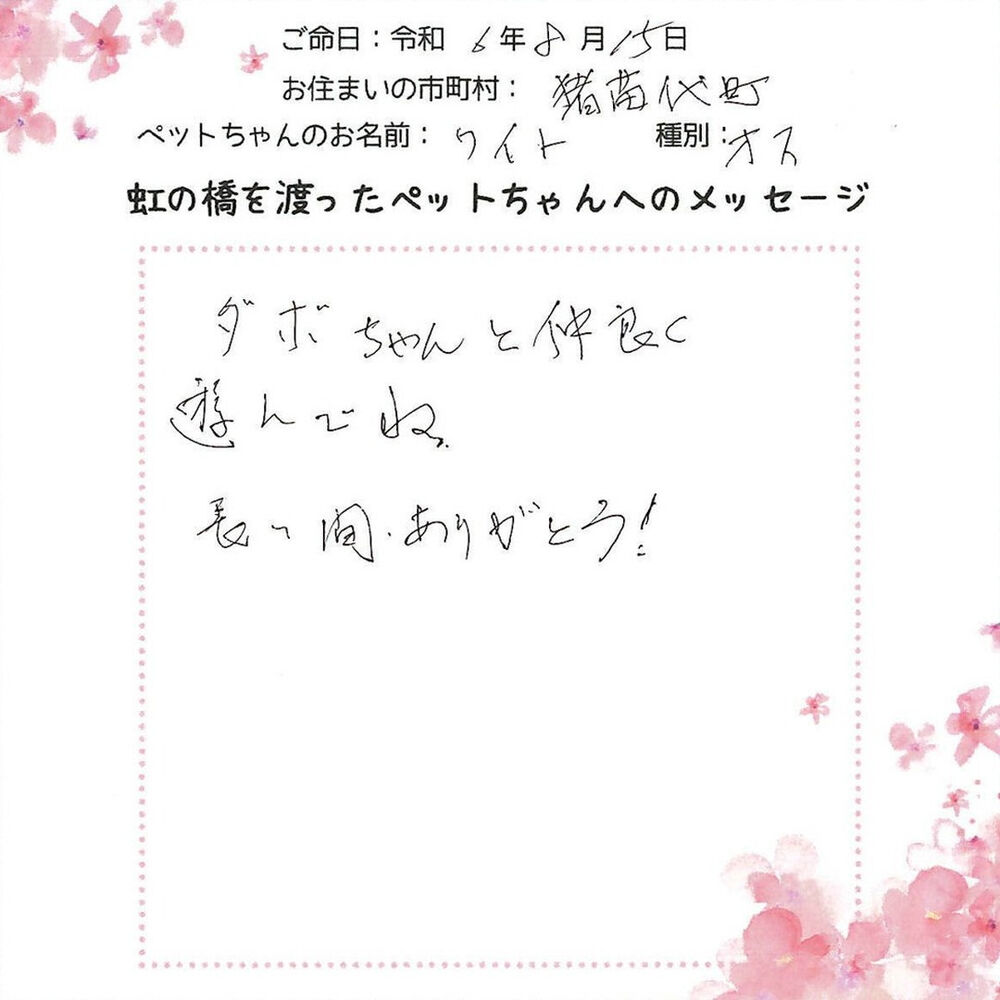 ご命日：令和 6年8月15日
お住まいの市町村： 猪苗代町
ペットちゃんのお名前： ワイト 種別：オス
虹の橋を渡ったペットちゃんへのメッセージ
ダボちゃんと仲良く
遊んでね。
長い間、ありがとう！